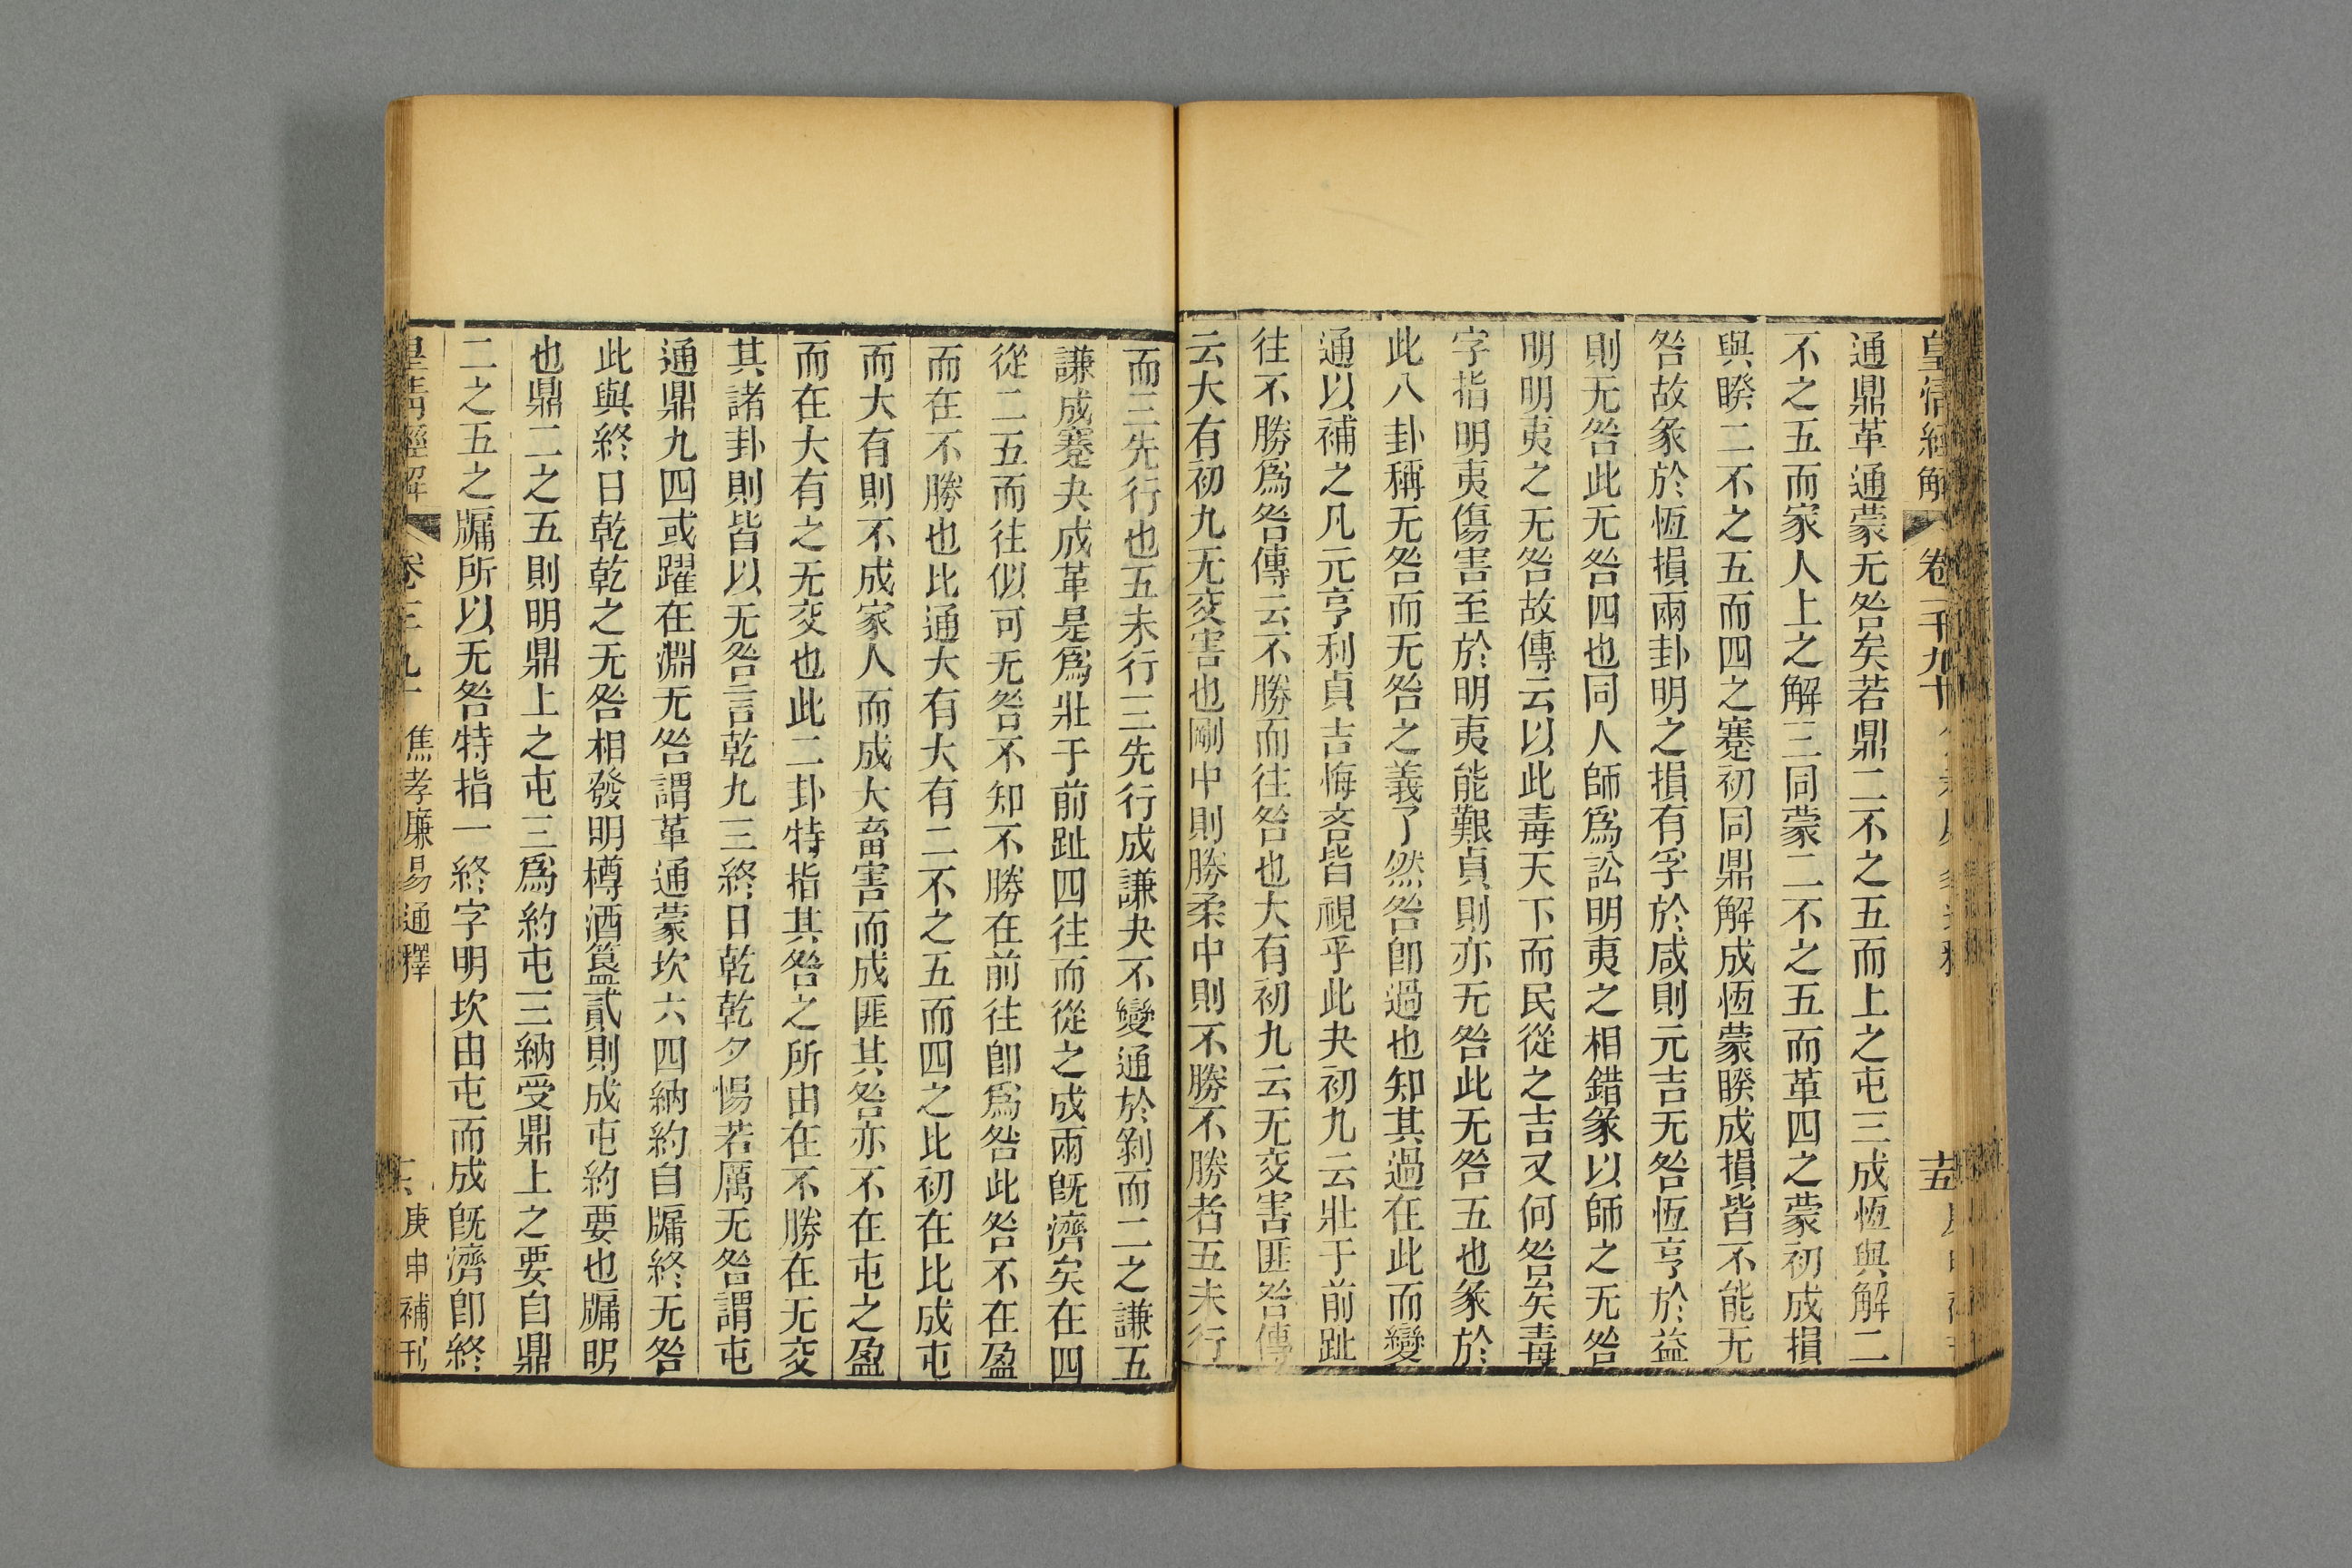 皇清經解 卷一千九十 十五
通鼎革通蒙无咎矣若鼎二不之五而上之屯三成恆與解二
不之五而家人上之解三同蒙二不之五而革四之蒙初成損
與睽二不之五而四之蹇初同鼎解成恆蒙睽成損皆不能无
咎故彖於恆損兩卦明之損有孚於咸則元吉无咎恆亨於益
則无咎此无咎四也同人師爲訟明夷之相錯彖以師之无咎
明明夷之无咎故傳云以此毒天下而民從之吉又何咎矣毒
字指明夷傷害至於明夷能艱貞則亦无咎此无咎五也彖於
此八卦稱无咎而无咎之義了然咎卽過也知其過在此而變
通以補之凡元亨利貞吉悔吝皆視乎此夬初九云壯于前趾
往不勝爲咎傳云不勝而往咎也大有初九云无交害匪咎傳
云大有初九无交害也剛中則勝柔中則不勝不勝者五未行
而三先行也五未行三先行成謙夬不變通於剝而二之謙五
謙成蹇夬成革是爲壯于前趾四往而從之成兩旣濟矣在四
從二五而往似可无咎不知不勝在前往卽爲咎此咎不在盈
而在不勝也比通大有大有二不之五而四之比初在比成屯
而大有則不成家人而成大畜害而成匪其咎亦不在屯之盈
而在大有之无交也此二卦特指其咎之所由在不勝在无交
其諸卦則皆以无咎言乾九三終日乾乾夕惕若厲无咎謂屯
通鼎九四或躍在淵无咎謂革通蒙坎六四納約自牖終无咎
此與終日乾乾之无咎相發明樽酒簋貳則成屯約要也牖明
也鼎二之五則明鼎上之屯三爲約屯三納受鼎上之要自鼎
二之五之牖所以无咎特指一終字明坎由屯而成旣濟卽終
皇清經解 卷 焦孝廉易通釋 庚申補刊